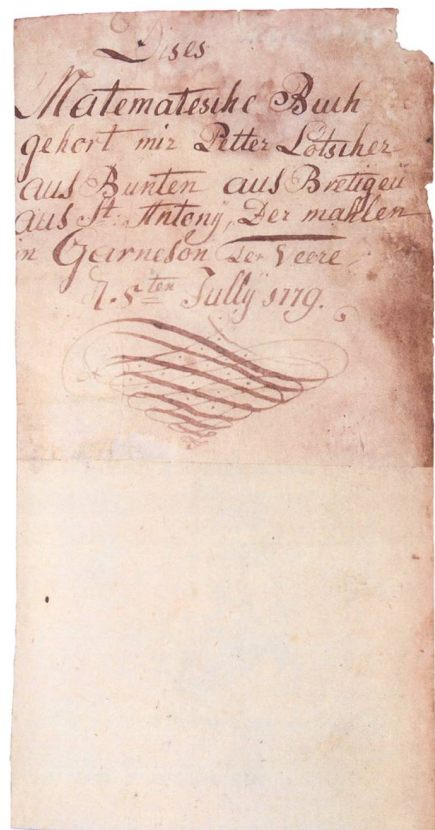 Dises
Matematesche Buch
gehort mir Petter Lötscher
aus Bunten aus Bretigeü
aus St. Antonÿ, Der mahlen
in Garneson Der Veere
d. 5ten Jullÿ 1779.